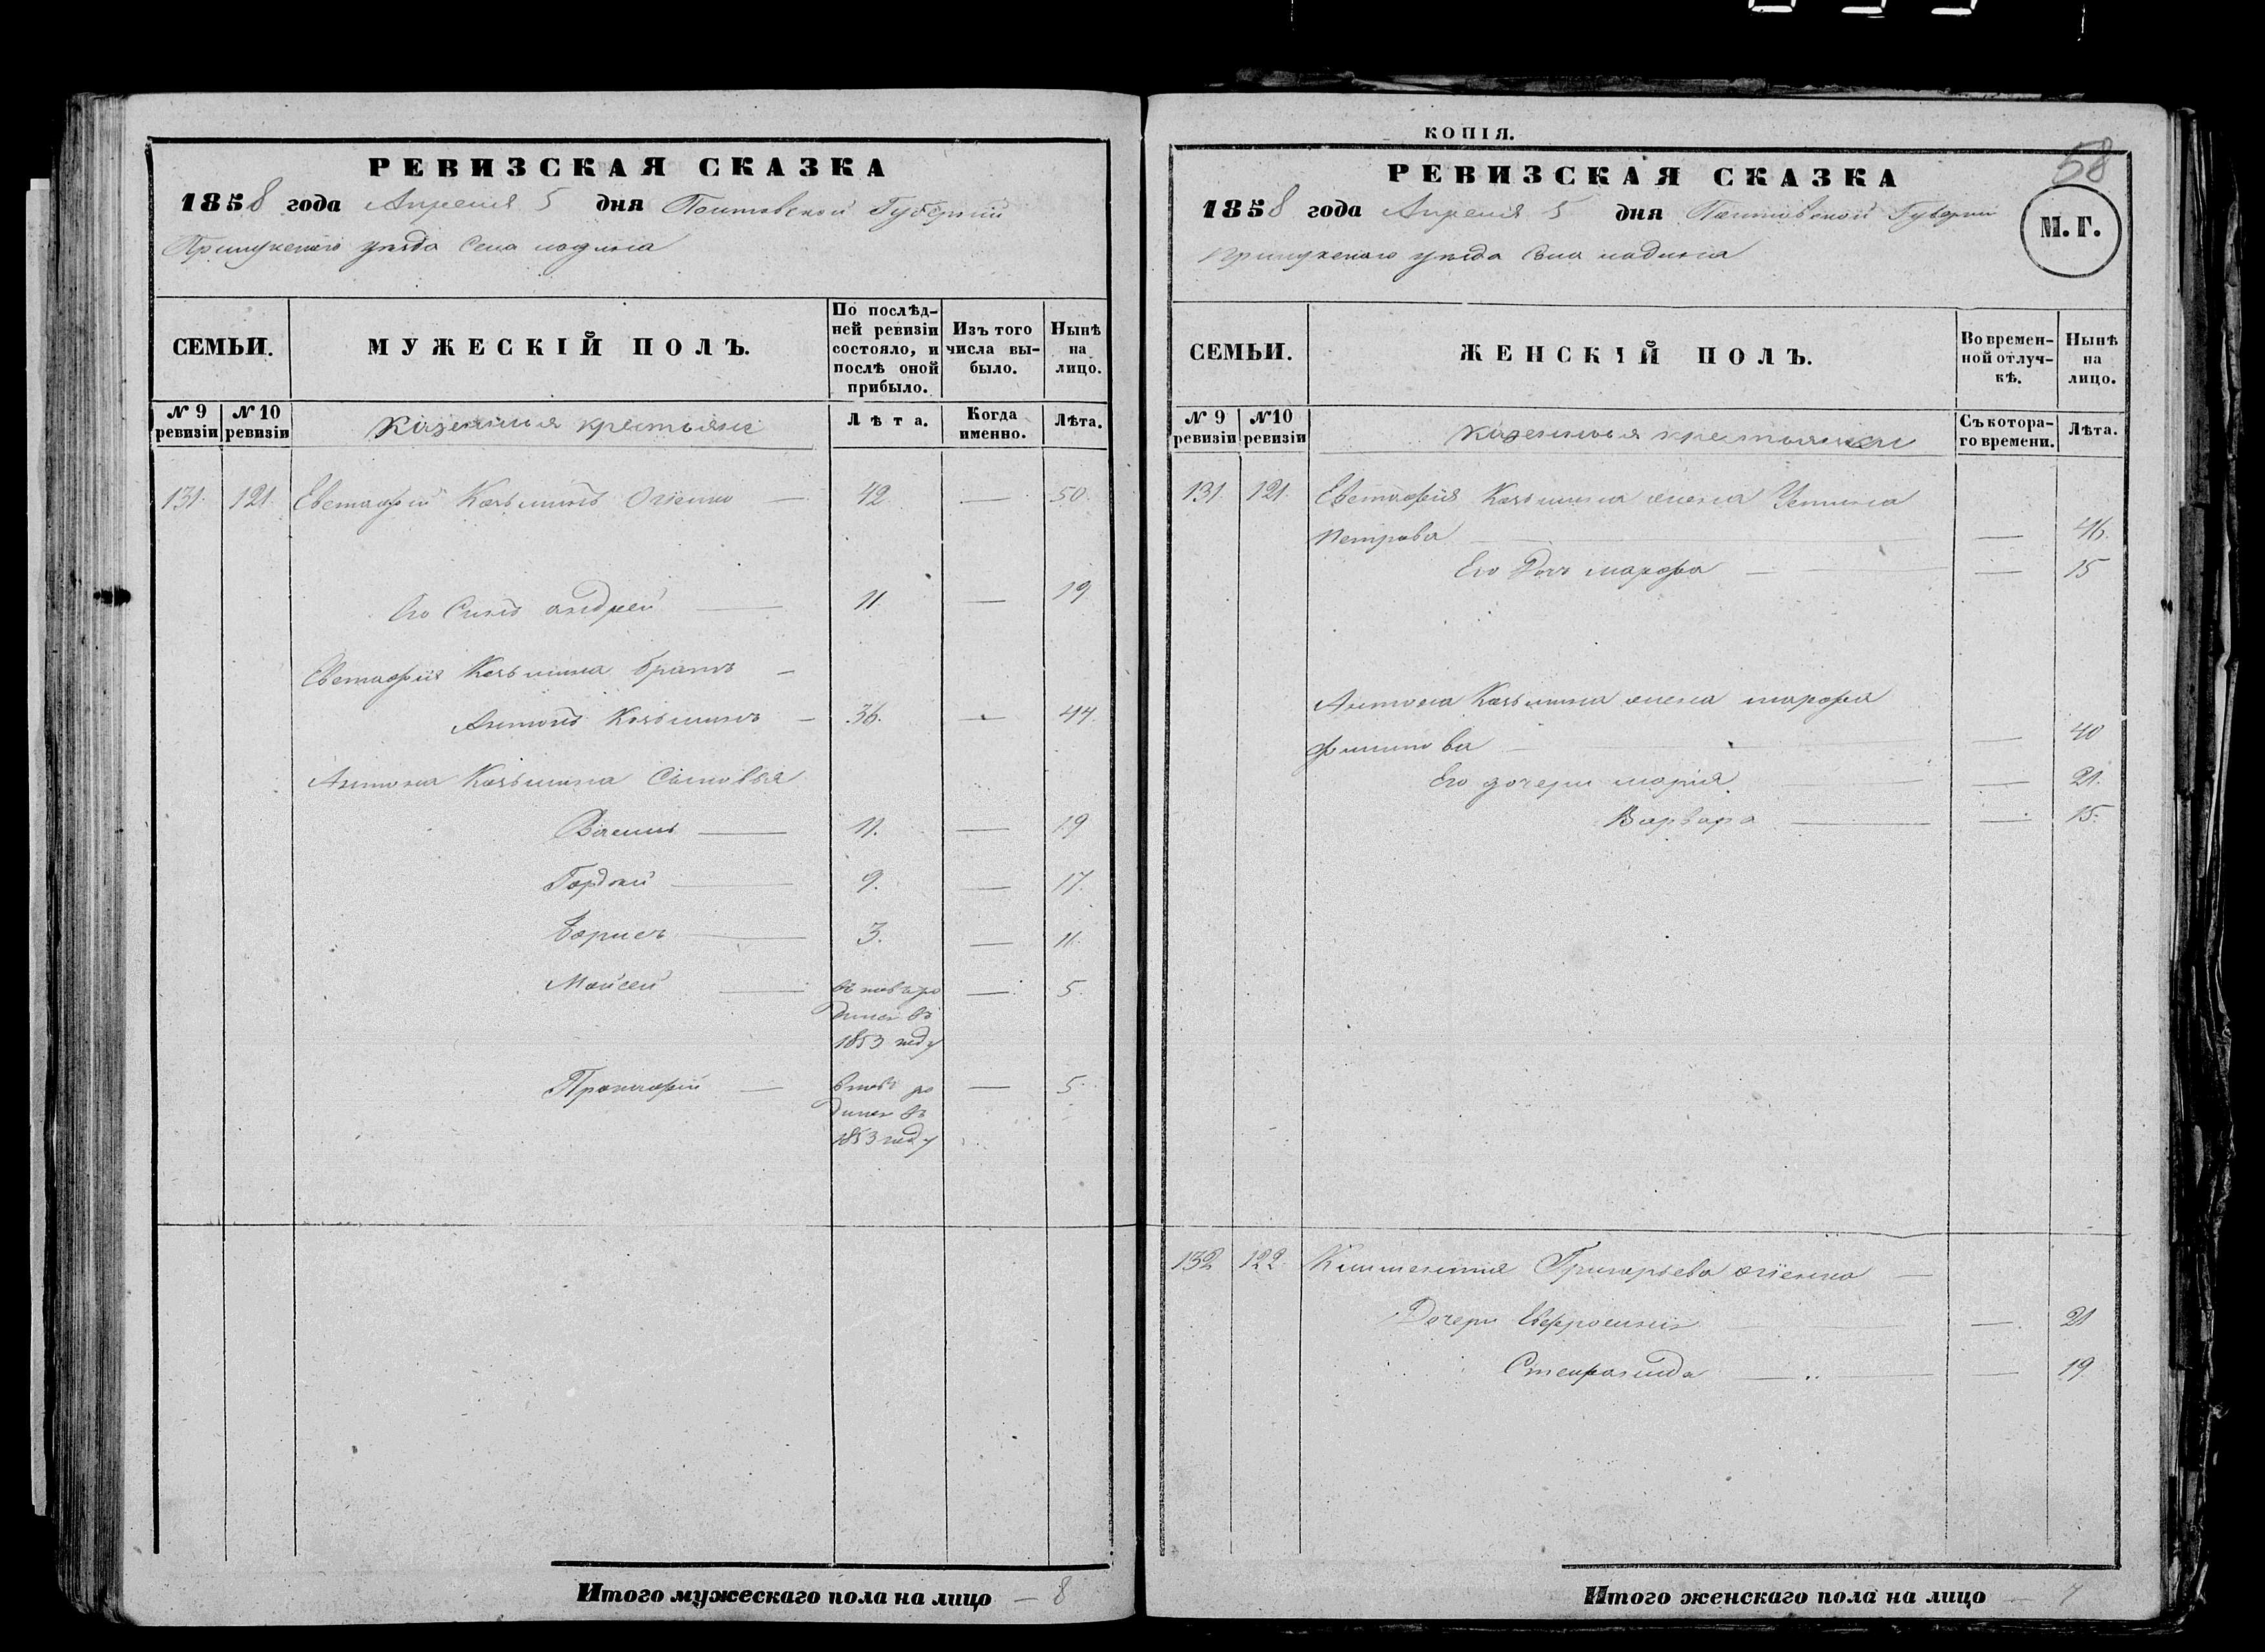 РЕВИЗСКАЯ СКАЗКА
1858 года Апреля 5 дня Полтавской Губернии
Прилукскаго уезда Села Ладина
СЕМЬИ.
МУЖЕСКІЙ ПОЛЪ.
По послѣд-
ней ревизіи
состояло, и
послѣ оной
прибыло.
Изъ того
числа вы-
было.
Нынѣ
на
лицо.
№ 9
ревизіи
№ 10
ревизіи
Казенныя крестьяне
Лѣта.
Когда
именно.
Лѣта.
131. 121. Евстафій Козьминъ Огіенко — 42 — 50.
Его Сынъ Андрей — 11 — 19
Евстафія Козьмина братъ —
Антонъ Козьминъ — 36. — 44.
Антона Козьмина Сыновья
Василь — 11. — 19
Гордѣй — 9. — 17.
Борисъ — 3. — 11.
Мойсей — вновь ро — 5.
дился въ
1853 году
Прокофій — вновь ро — 5.
дился въ
1853 году
Итого мужескаго пола на лицо — 8
КОПІЯ.
58
РЕВИЗСКАЯ СКАЗКА
1858 года Апреля 5 дня Полтовской Губерніи
Прилукскаго уезда Села Ладина
М. Г.
СЕМЬИ.
ЖЕНСКІЙ ПОЛЪ.
Во времен-
ной отлуч-
кѣ.
Нынѣ
на
лицо.
№ 9
ревизіи
№10
ревизіи
Казенныя крестьянки
Съ котора-
го времени.
Лѣта.
131. 121. Евстафія Козьмина жена Устина
Петрова — — 46.
Его Дочь Марфа — — 15
Антона Козьмина жена Марфа
Филипова — — 40
Его дочери Марія — — 21.
Варвара — — 15.
132 122. Климентія Григорьева Огіенка —
Дочери Ефросинія — — 21
Степанида — — 19
Итого женскаго пола на лицо — 7